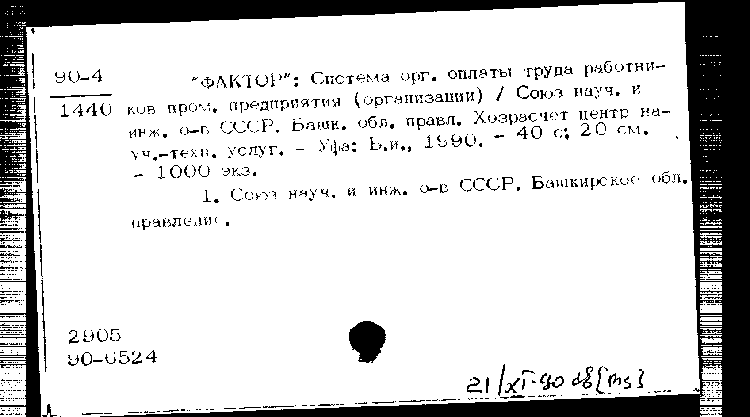 90-4
1440
"ФАКТОР": Система орг. оплаты труда работни-
ков пром. предприятия (организации) / Союз науч. и
инж. о-в СССР. Башк. обл. правл. Хозрасчет центр на-
уч.-техн. услуг. - Уфа: Б.и., 1990. - 40 с; 20 см.
- 1000 экз.
1. Союз науч. и инж. о-в СССР. Башкирское обл.
правление.
2905
90-6524
21/XI-90